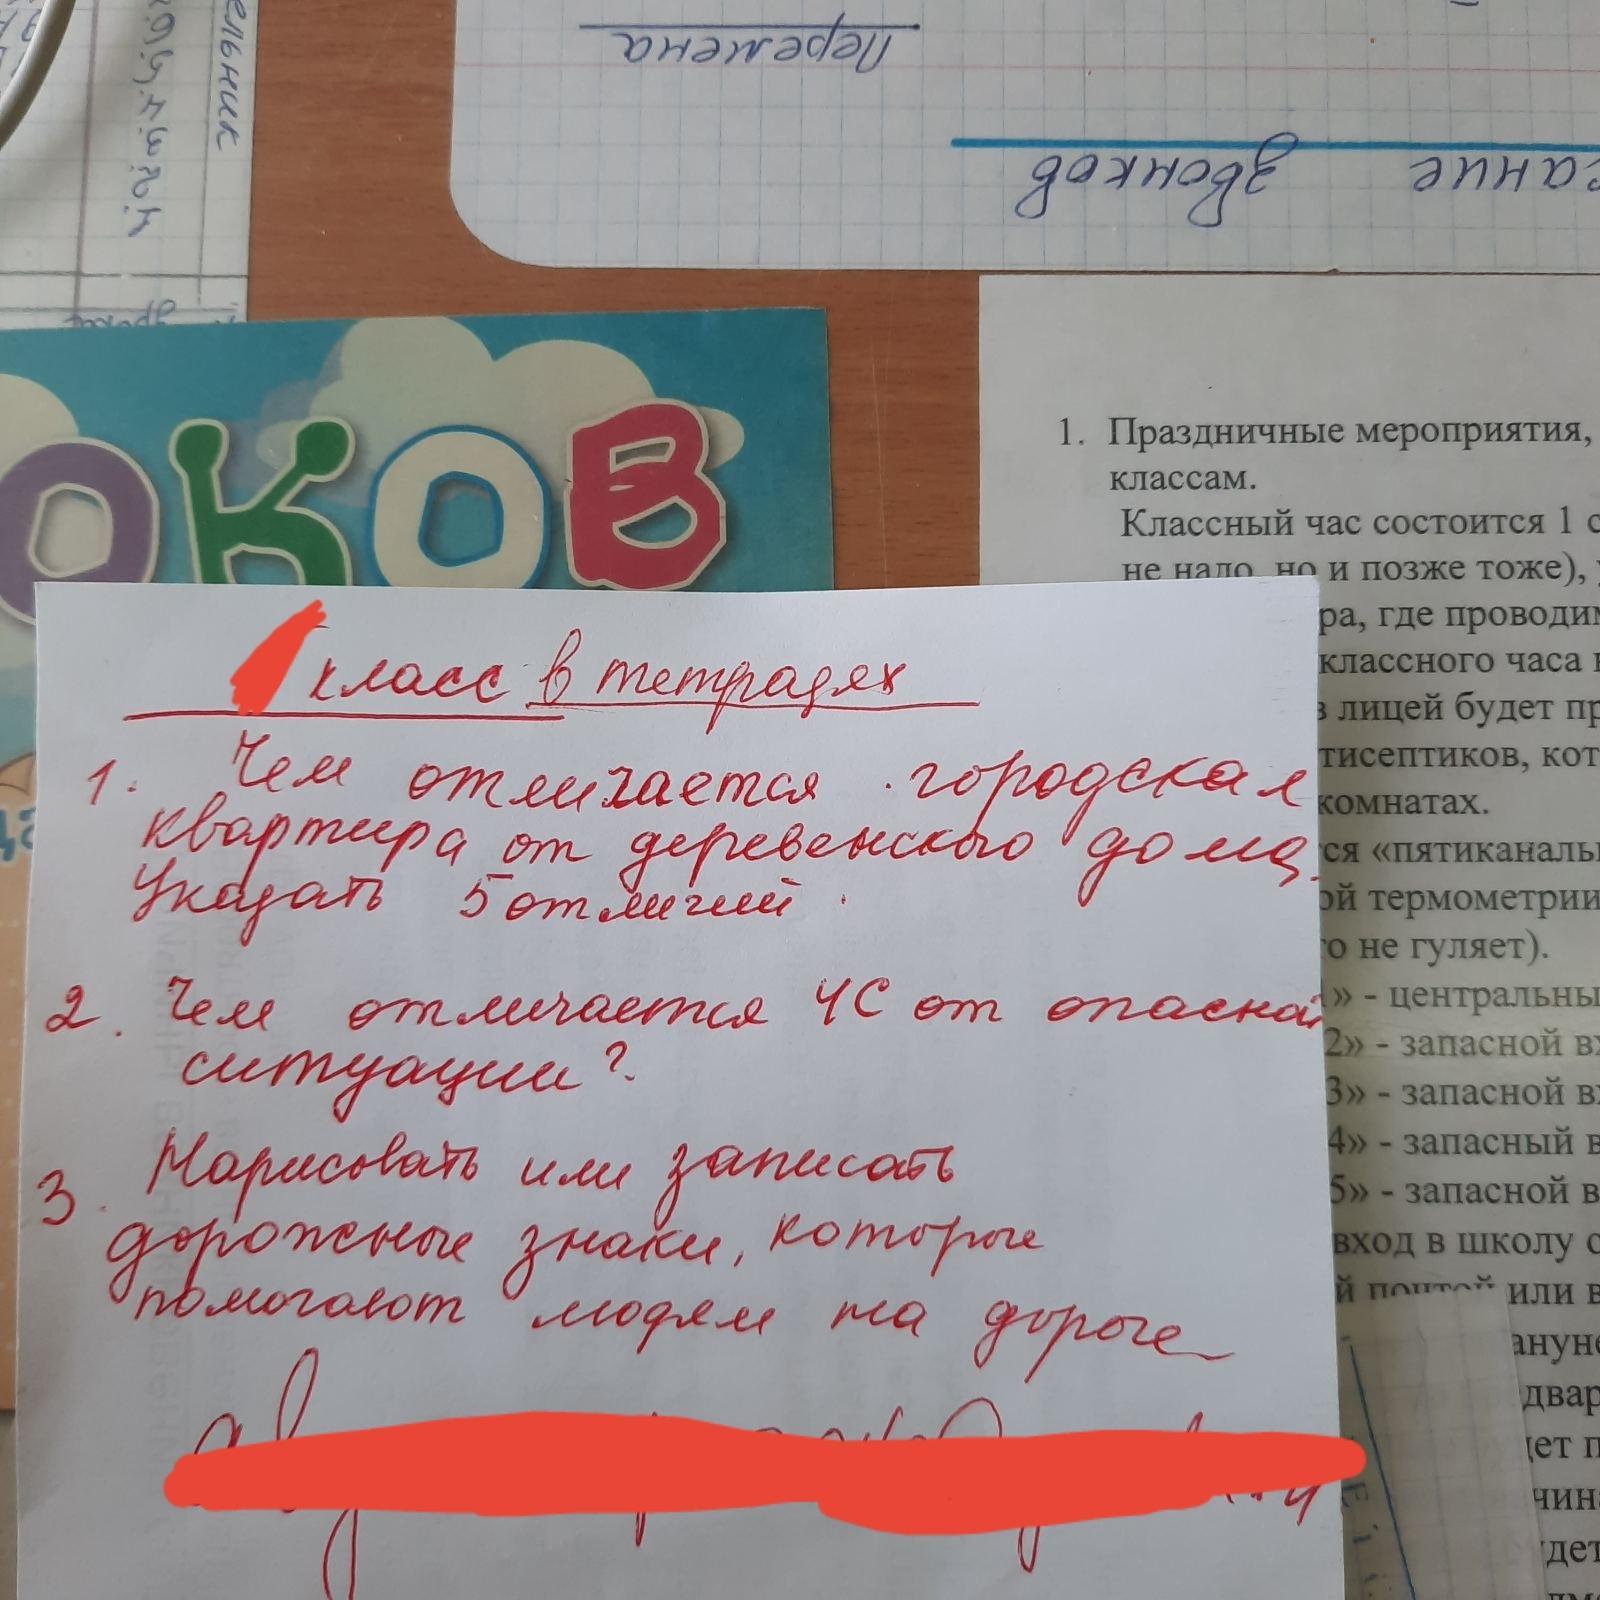 ельник
Перемена
звонков
ание
уроке
ОКОВ
1. Праздничные мероприятия,
классам.
Классный час состоится 1 с
не надо, но и позже тоже), у
ра, где проводим
классного часа в
в лицей будет пр
тисептиков, кот
комнатах.
ся «пятиканаль
ой термометрии
о не гуляет).
» - центральны
2» - запасной вх
3» - запасной вх
4» - запасный в
5» - запасной в
вход в школу с
й почтой или в
ануне
двар
дет п
чина
удет
класс в тетрадях
1. Чем отличается городская
квартира от деревенского дома.
Указать 5 отличий.
2. Чем отличается ЧС от опасной
ситуации?
3. Нарисовать или записать
дорожные знаки, которые
помогают людям на дороге